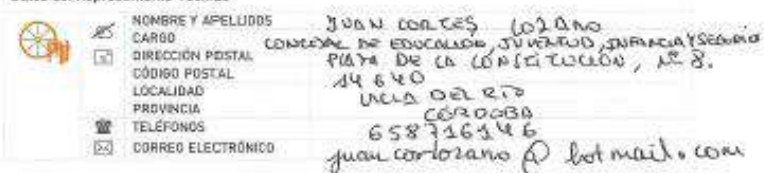 NOMBRE Y APELLIDOS JUAN CORTES LOZANO
CARGO CONCEJAL DE EDUCACION, JUVENTUD, INFANCIA Y SEGURID
DIRECCIÓN POSTAL PLAZA DE LA CONSTITUCIÓN, Nº 8.
CÓDIGO POSTAL 14640
LOCALIDAD VILLA DEL RIO
PROVINCIA CORDOBA
TELÉFONOS 658716146
CORREO ELECTRÓNICO juancorlozano@hotmail.com